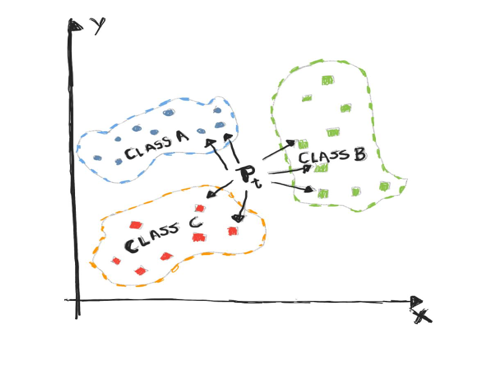 Y
CLASS A
CLASS B
Pt
CLASS C
X